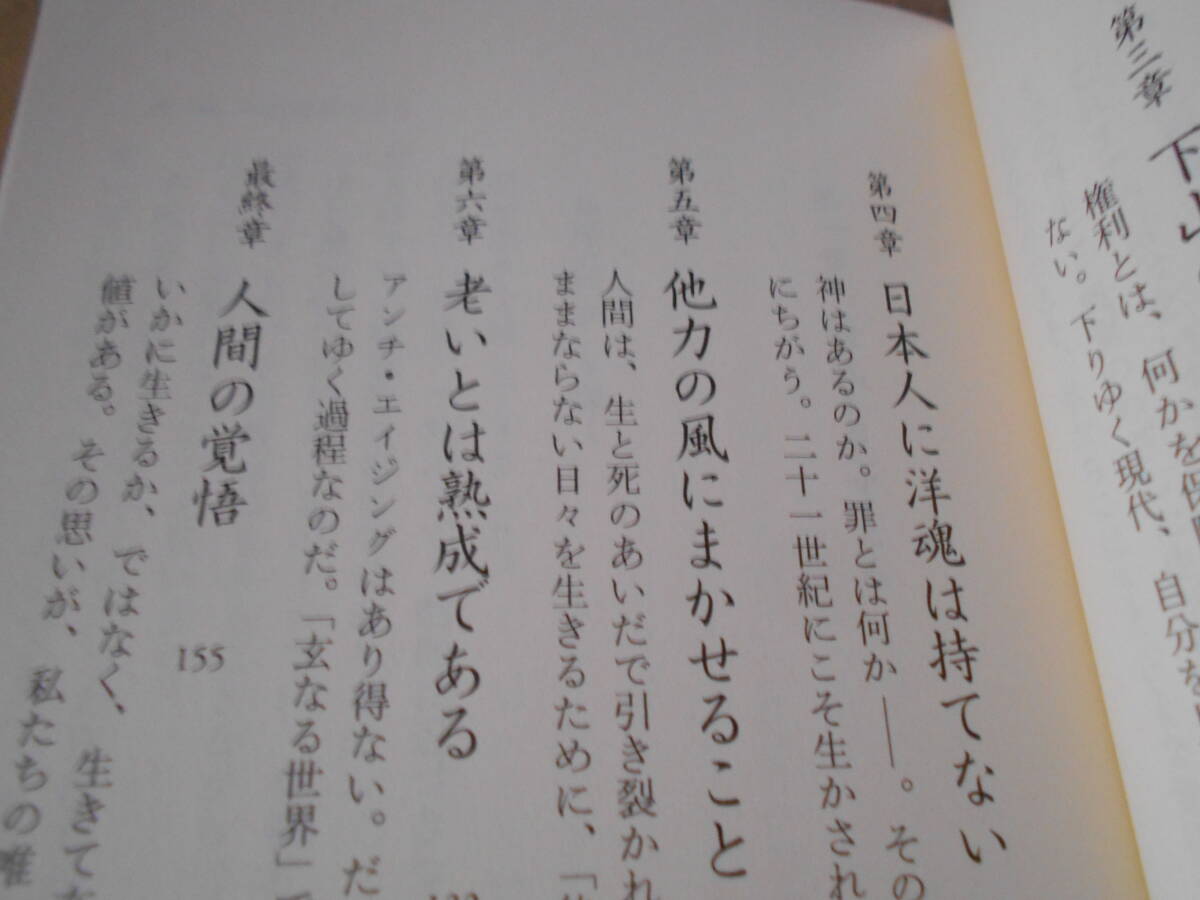 第三章
権利とは、何かを
ない。下りゆく現代、自分を
第四章 日本人に洋魂は持てない
神はあるのか。罪とは何か――。その
にちがう。二十一世紀にこそ生かされ
第五章 他力の風にまかせること
人間は、生と死のあいだで引き裂かれ
ままならない日々を生きるために、「
第六章 老いとは熟成である
アンチ・エイジングはあり得ない。だ
してゆく過程なのだ。「玄なる世界」で
最終章 人間の覚悟
155
いかに生きるか、ではなく、生きて
値がある。その思いが、私たちの唯